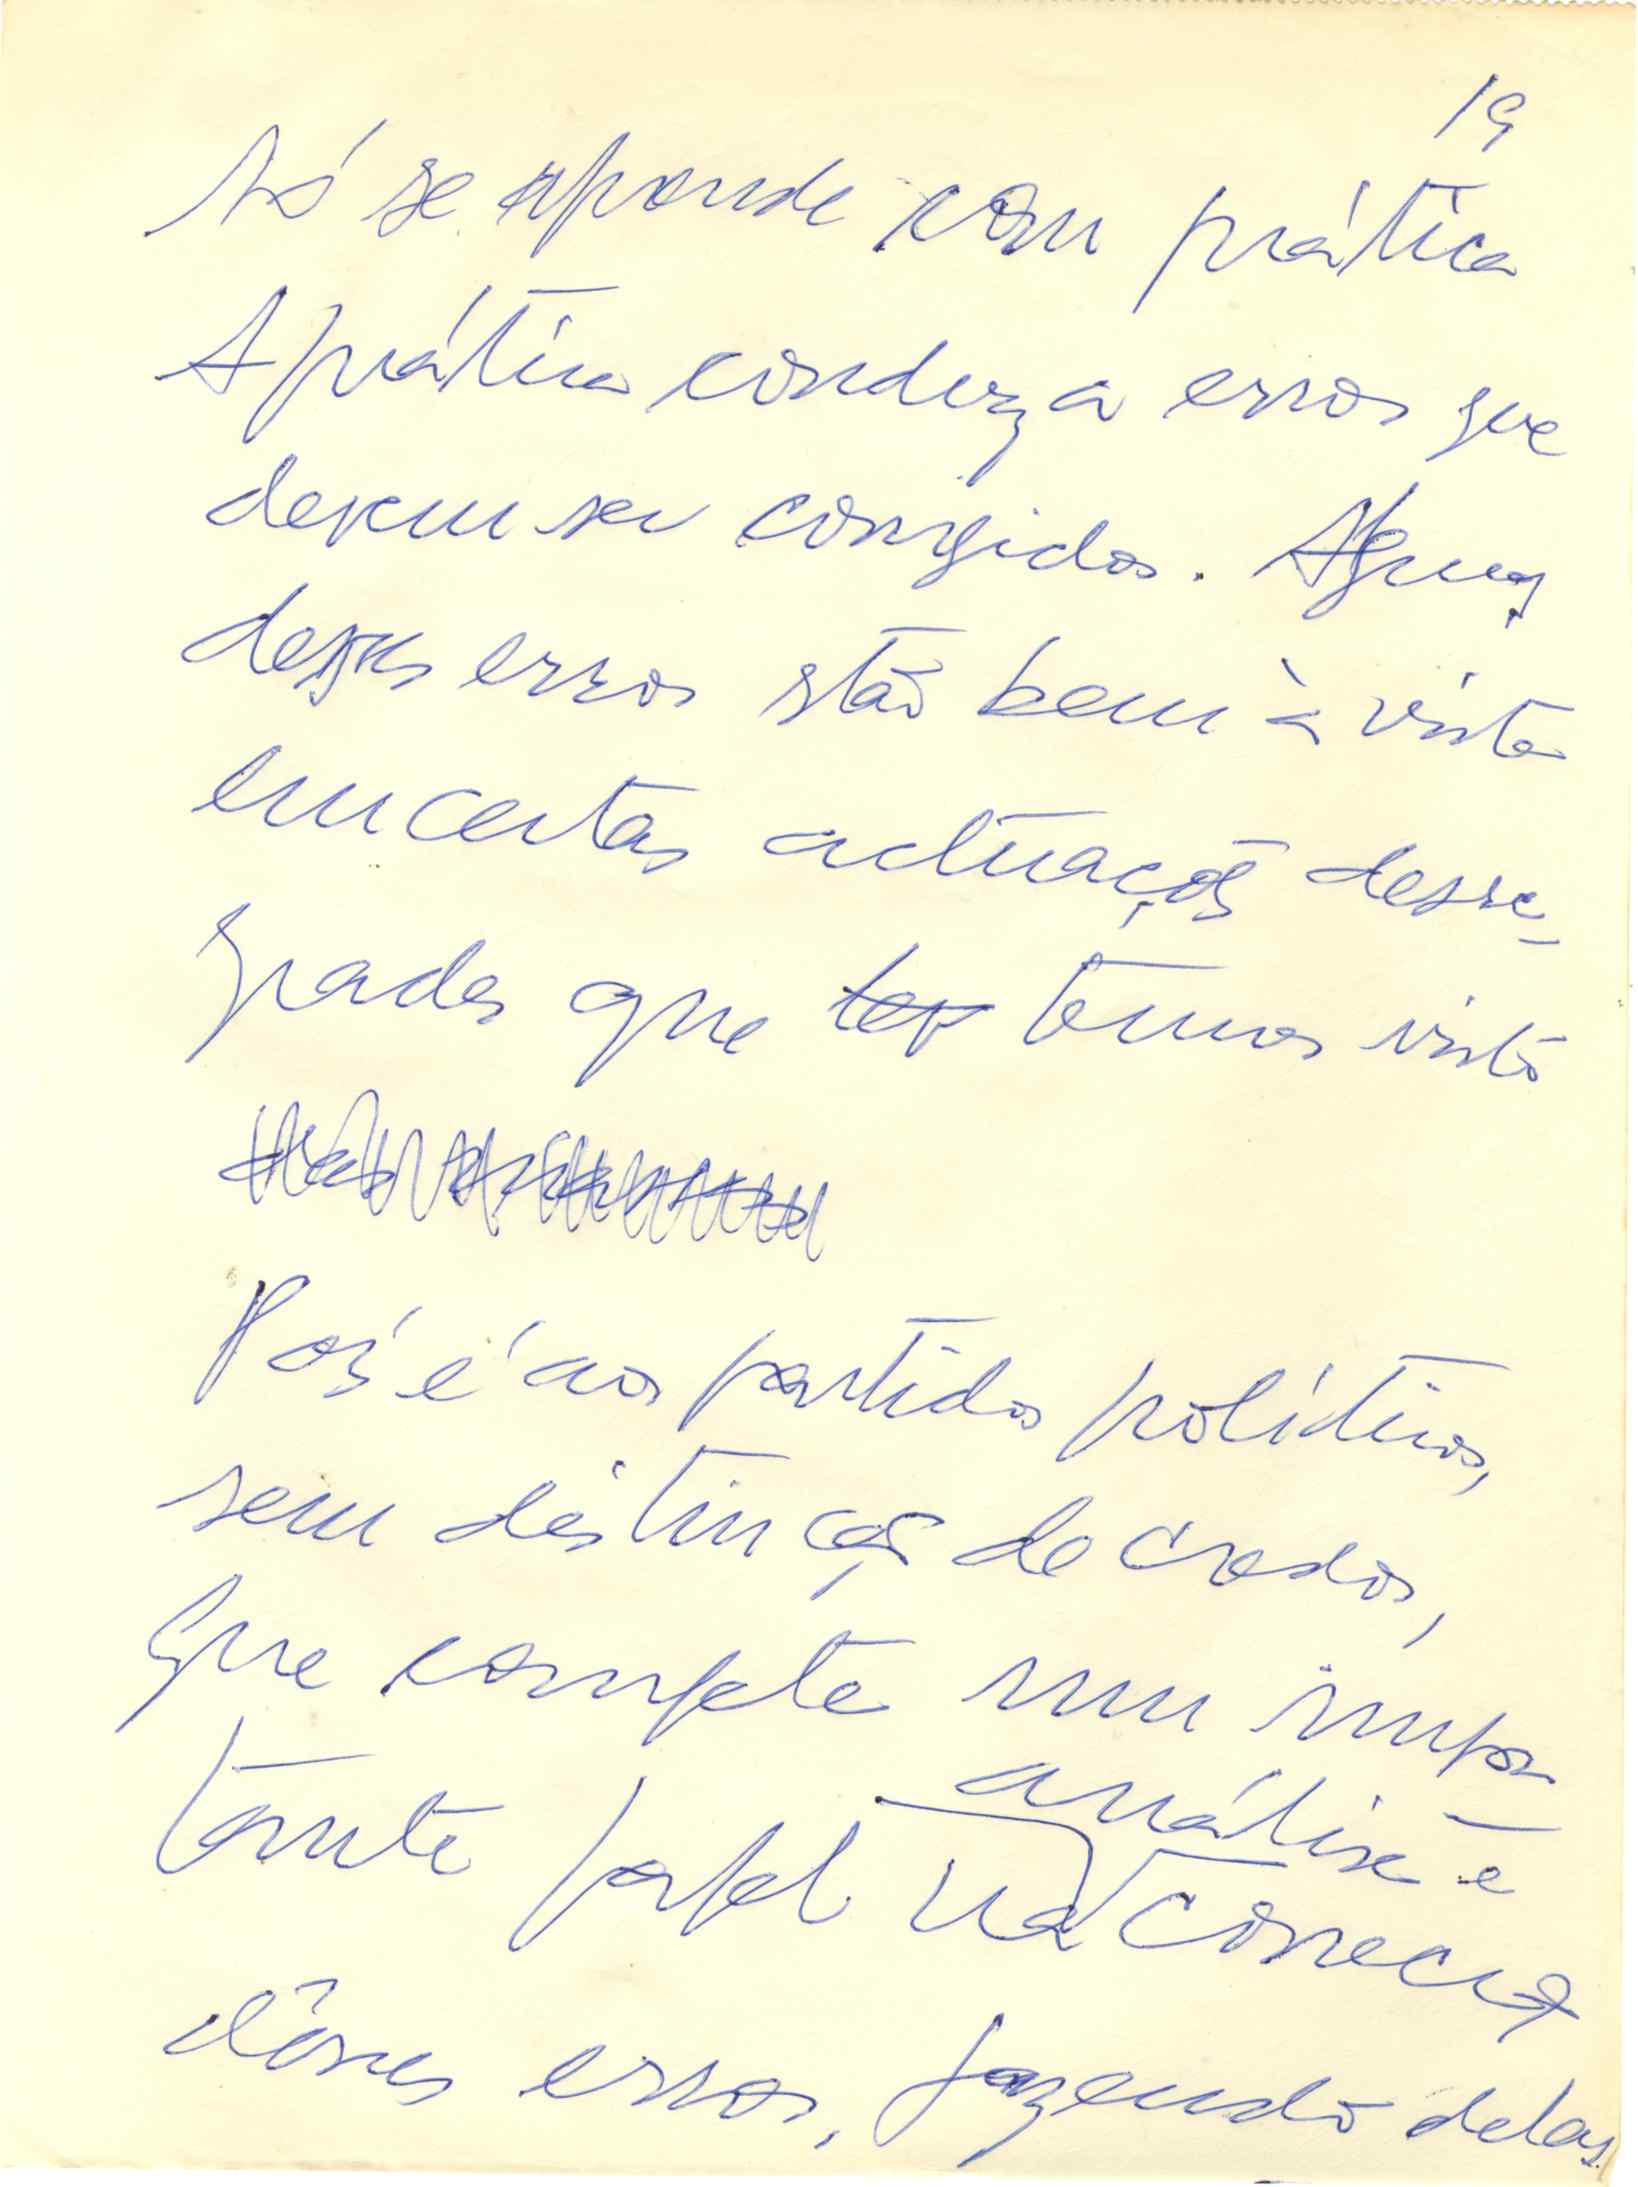 19
Só se aprende com prática
A prática conduz a erros que
devem ser corrigidos. Alguns
desses erros estão bem à vista
em certas actuações desre-
gradas que ter temos visto
Pois é aos partidos políticos,
sem distinção de credos,
que compete um impor-
análise e
tante papel na correcção
desses erros, fazendo delas